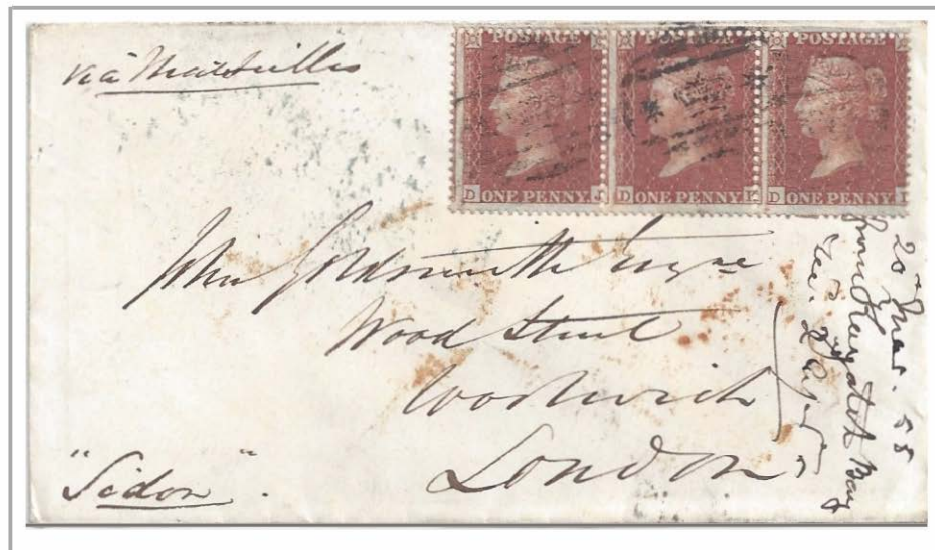 via Marseilles
POSTAGE POSTAGE POSTAGE
D ONE PENNY J D ONE PENNY K D ONE PENNY
John Goldsmith Esqre
Wood Street
Woolwich
London
"Sidon".
20 Mar. 55
from Bay